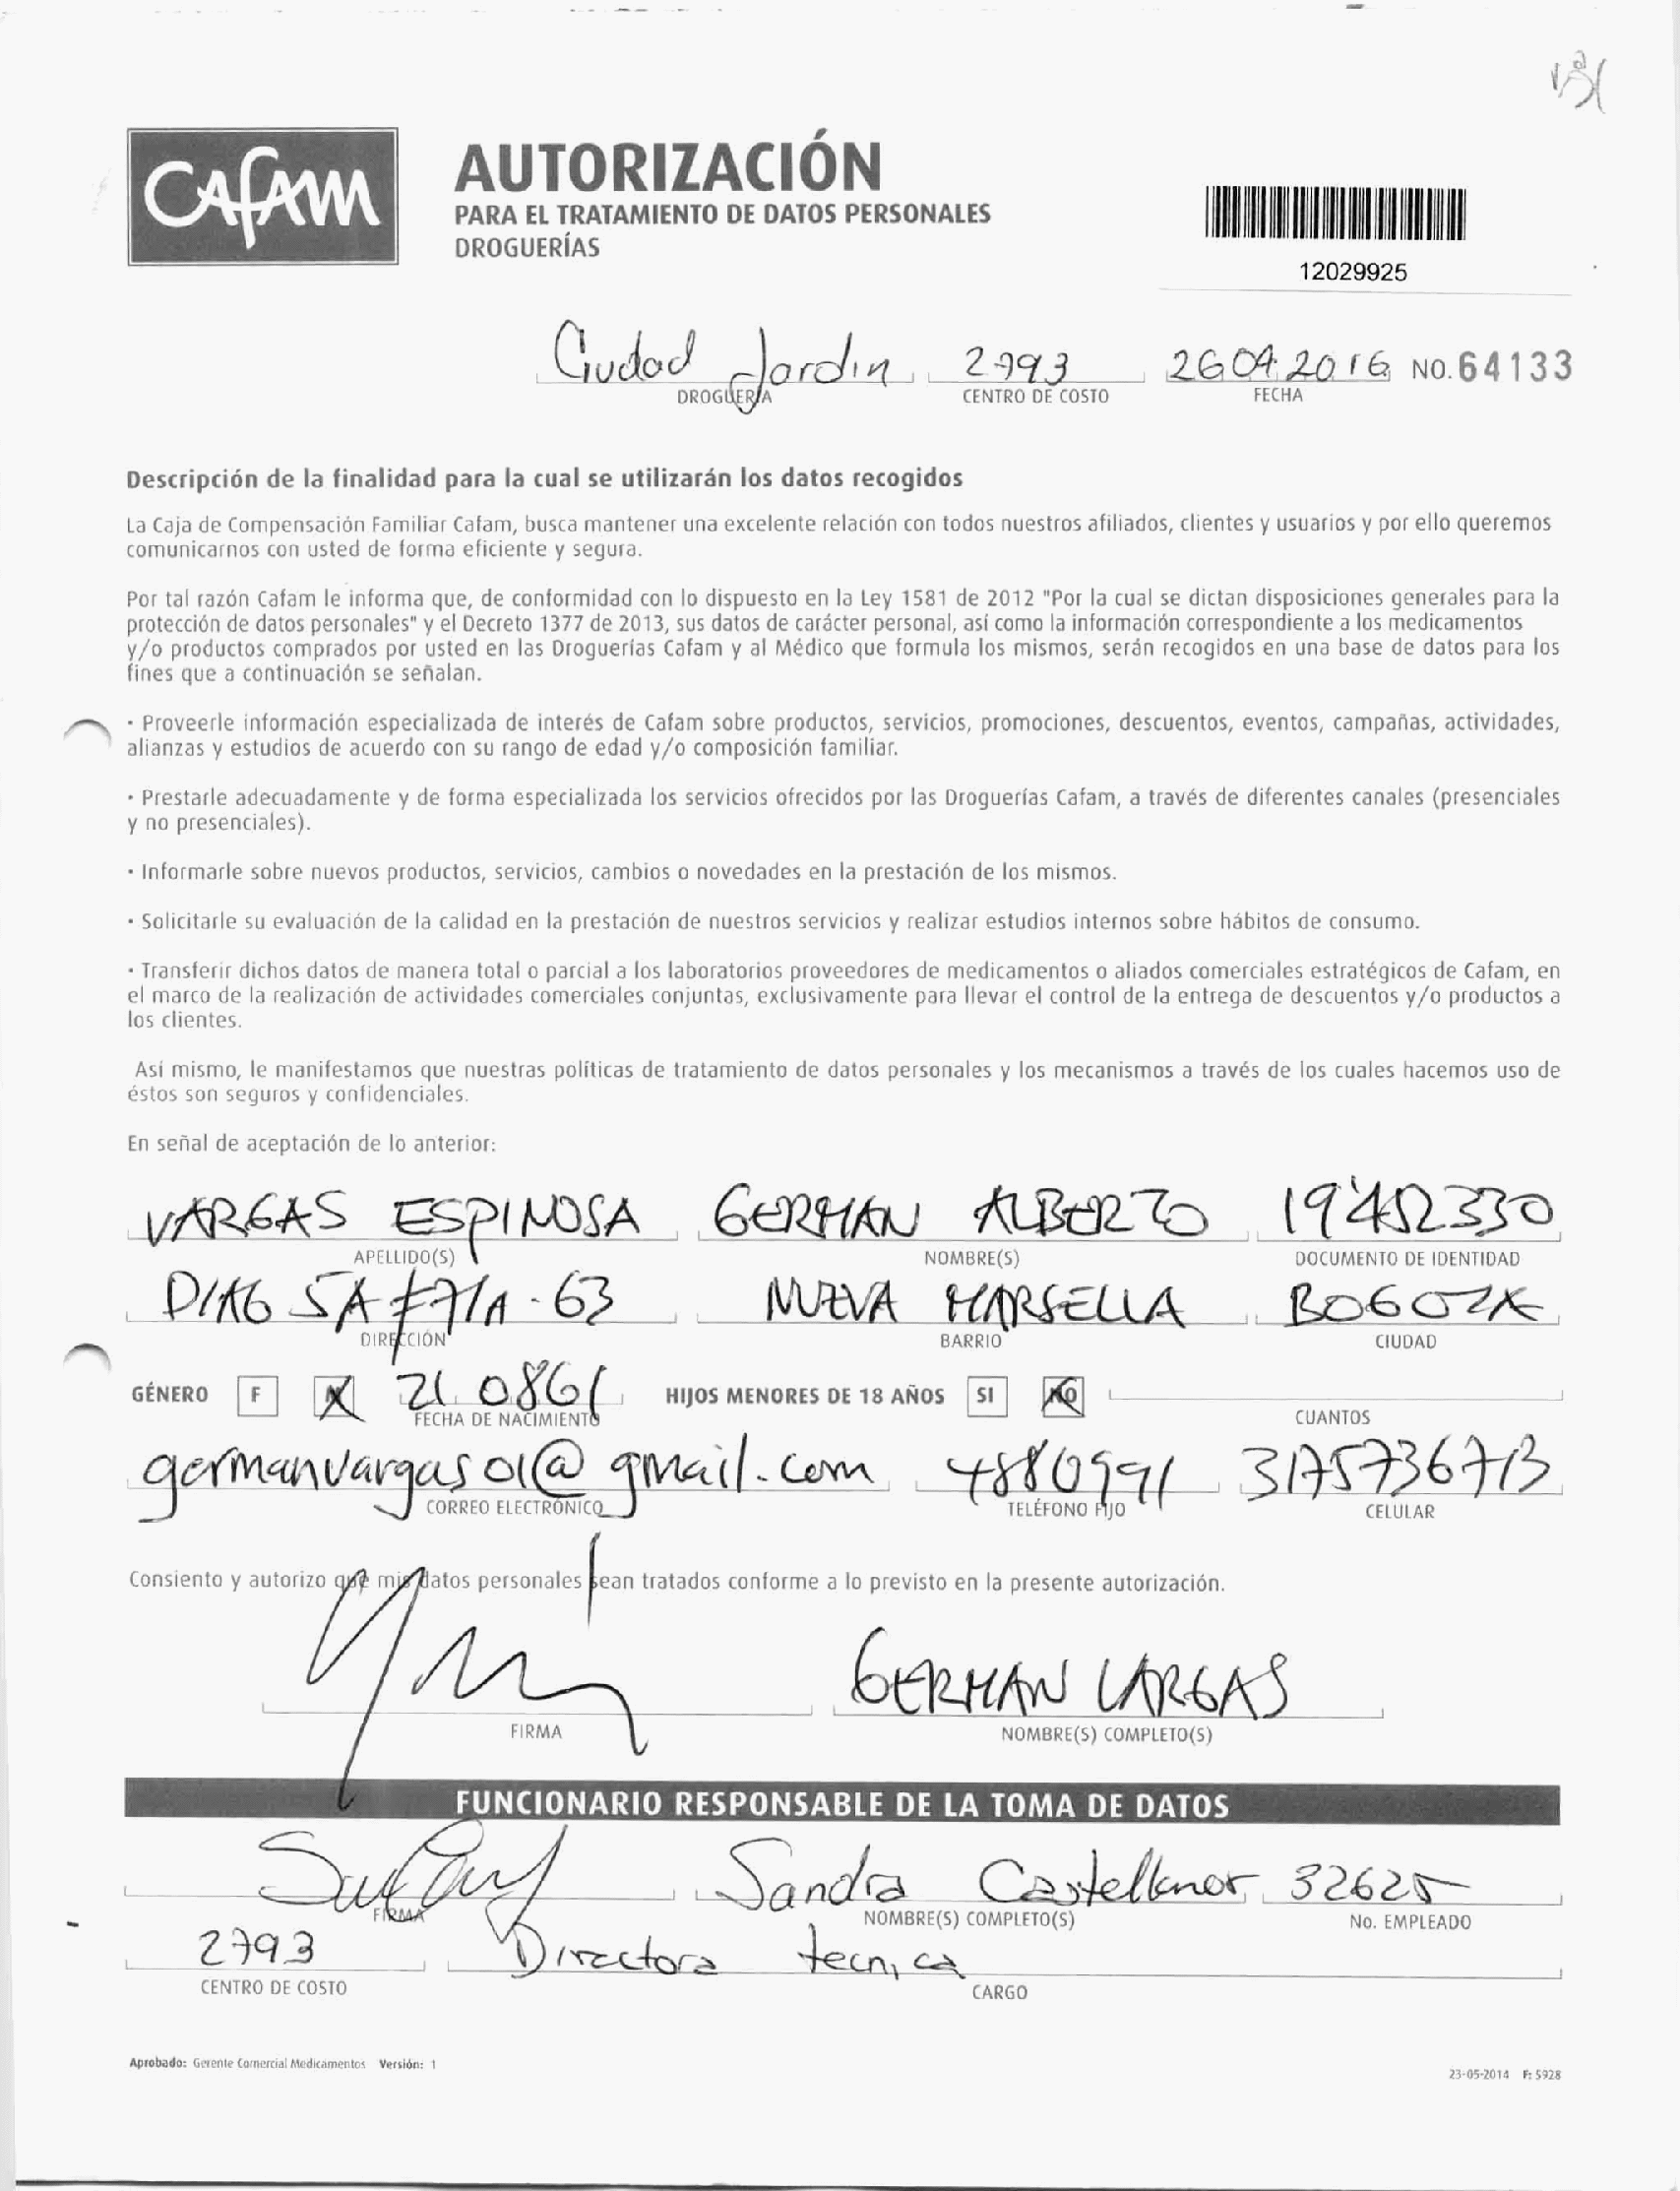 CAFAM
AUTORIZACIÓN
PARA EL TRATAMIENTO DE DATOS PERSONALES
DROGUERÍAS
12029925
Ciudad Jardin 2793 26 04 2016 NO. 64133
DROGUERÍA CENTRO DE COSTO FECHA
Descripción de la finalidad para la cual se utilizarán los datos recogidos
La Caja de Compensación Familiar Cafam, busca mantener una excelente relación con todos nuestros afiliados, clientes y usuarios y por ello queremos
comunicarnos con usted de forma eficiente y segura.
Por tal razón Cafam le informa que, de conformidad con lo dispuesto en la Ley 1581 de 2012 "Por la cual se dictan disposiciones generales para la
protección de datos personales" y el Decreto 1377 de 2013, sus datos de carácter personal, así como la información correspondiente a los medicamentos
y/o productos comprados por usted en las Droguerías Cafam y al Médico que formula los mismos, serán recogidos en una base de datos para los
fines que a continuación se señalan.
· Proveerle información especializada de interés de Cafam sobre productos, servicios, promociones, descuentos, eventos, campañas, actividades,
alianzas y estudios de acuerdo con su rango de edad y/o composición familiar.
· Prestarle adecuadamente y de forma especializada los servicios ofrecidos por las Droguerías Cafam, a través de diferentes canales (presenciales
y no presenciales).
· Informarle sobre nuevos productos, servicios, cambios o novedades en la prestación de los mismos.
· Solicitarle su evaluación de la calidad en la prestación de nuestros servicios y realizar estudios internos sobre hábitos de consumo.
· Transferir dichos datos de manera total o parcial a los laboratorios proveedores de medicamentos o aliados comerciales estratégicos de Cafam, en
el marco de la realización de actividades comerciales conjuntas, exclusivamente para llevar el control de la entrega de descuentos y/o productos a
los clientes.
Así mismo, le manifestamos que nuestras políticas de tratamiento de datos personales y los mecanismos a través de los cuales hacemos uso de
éstos son seguros y confidenciales.
En señal de aceptación de lo anterior:
VARGAS ESPINOSA GERMAN ALBERTO
APELLIDO(S) NOMBRE(S) DOCUMENTO DE IDENTIDAD
DIAG 5A #71A-63 NUEVA MARSELLA BOGOTA
DIRECCIÓN BARRIO CIUDAD
GÉNERO F M 21 08 61 HIJOS MENORES DE 18 AÑOS SI NO
FECHA DE NACIMIENTO CUANTOS
germanvargas01@gmail.com 4880991 3175736713
CORREO ELECTRÓNICO TELÉFONO FIJO CELULAR
Consiento y autorizo que mis datos personales sean tratados conforme a lo previsto en la presente autorización.
GERMAN VARGAS
FIRMA NOMBRE(S) COMPLETO(S)
FUNCIONARIO RESPONSABLE DE LA TOMA DE DATOS
Sandra Castellanos 32625
FIRMA NOMBRE(S) COMPLETO(S) No. EMPLEADO
2793 Directora tecnica
CENTRO DE COSTO CARGO
Aprobado: Gerente Comercial Medicamentos Versión: 1
23-05-2014 F: 5928